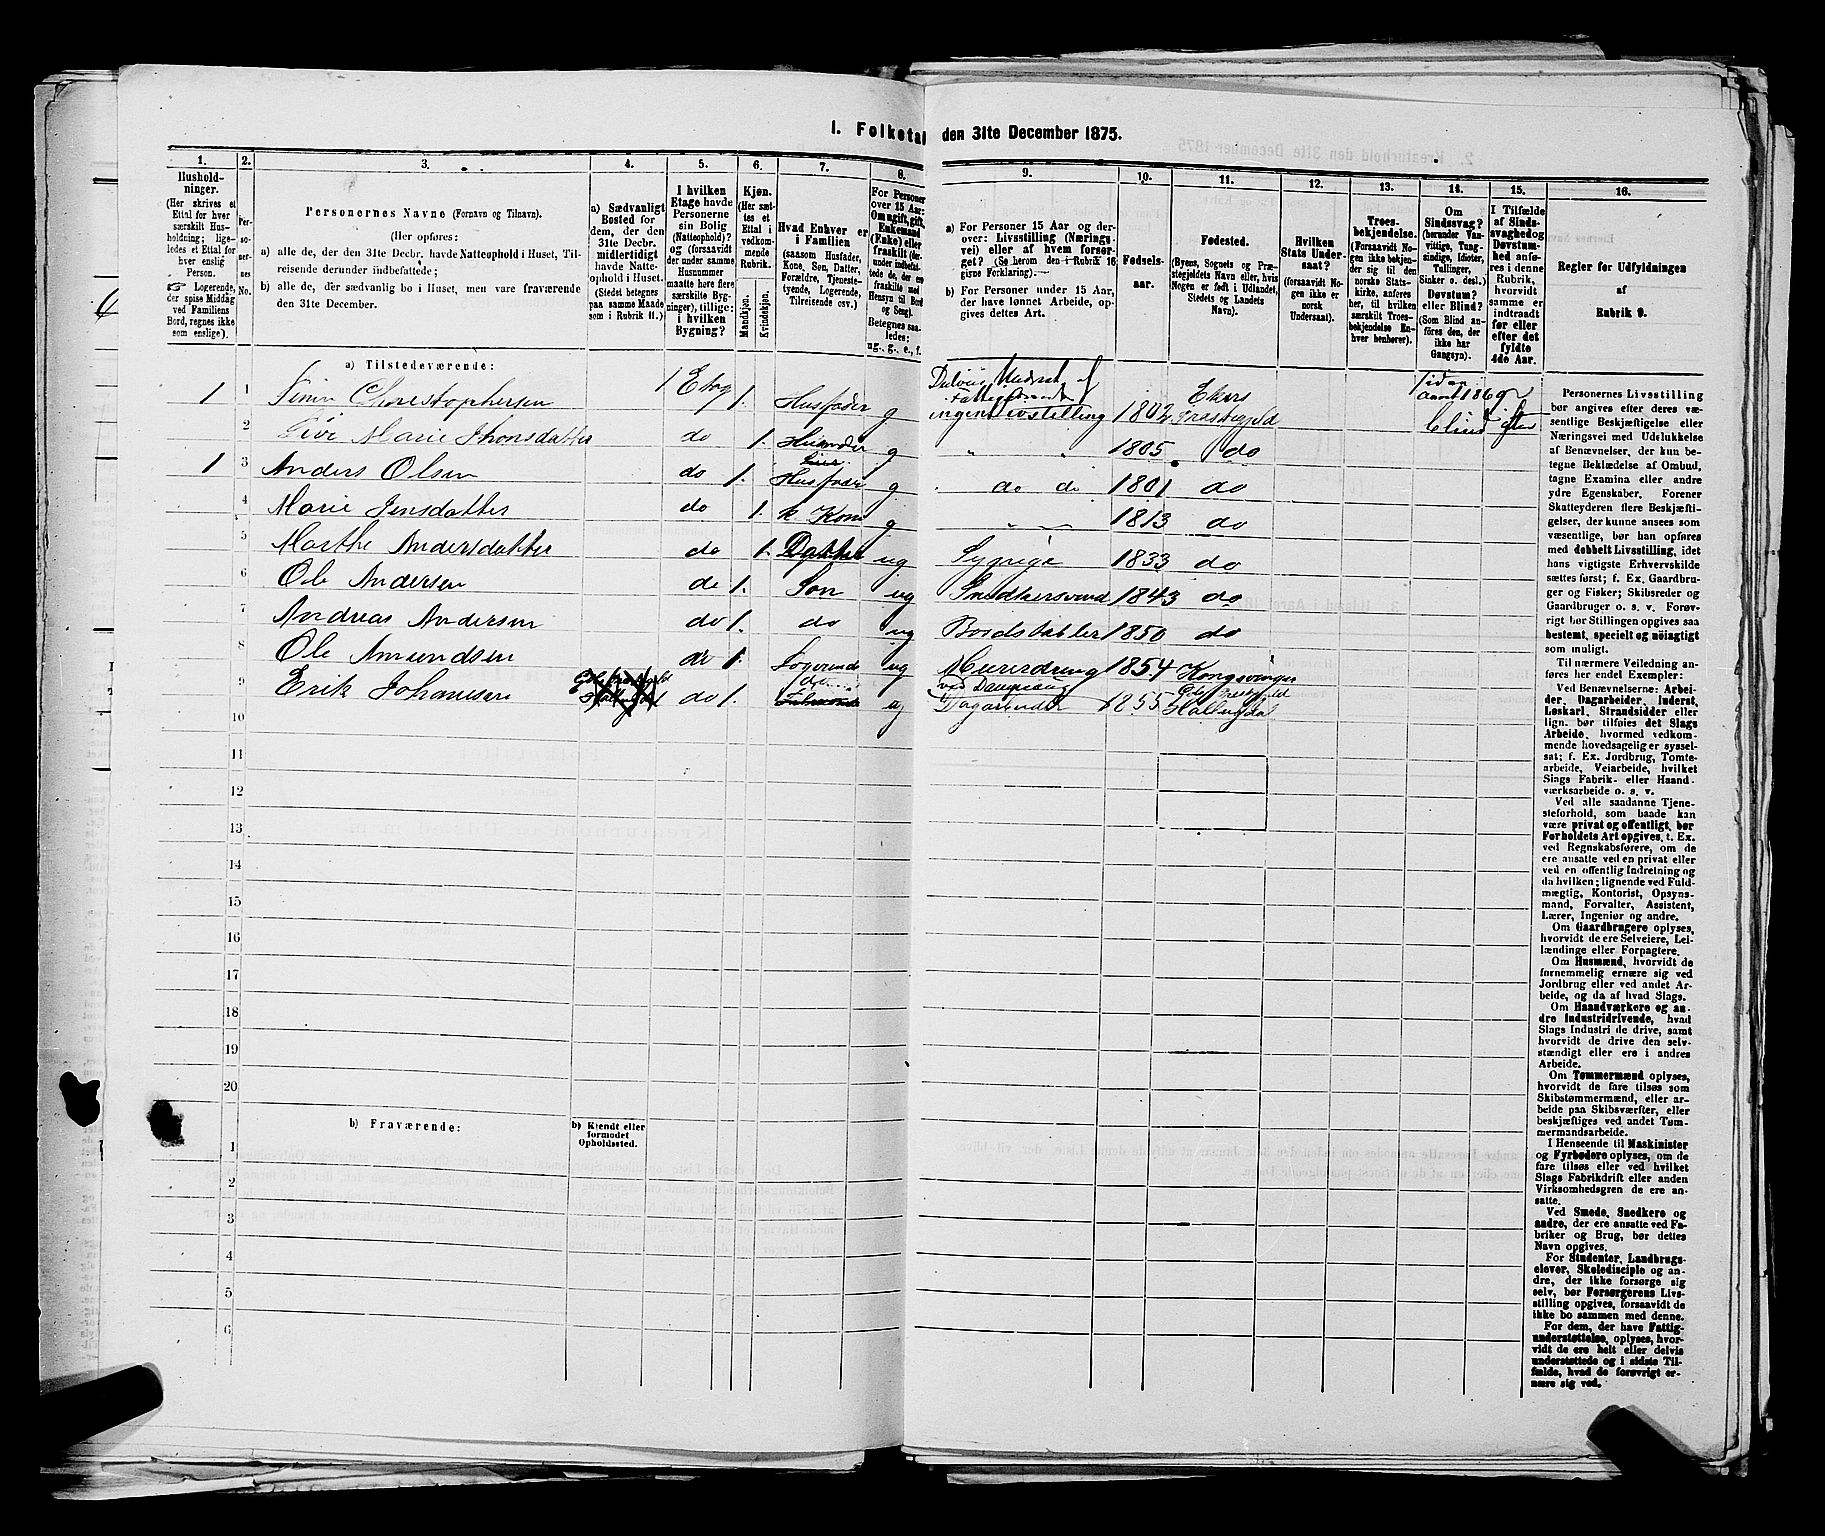 1. Folketal den 31te December 1875.
1.
Husholdninger.
(Her skrives et
Ettal for hver
særskilt Husholdning;
ligeledes et Ettal for
hver enslig
Person.
Logerende,
der spise Middag
ved Familiens
Bord, regnes ikke
som enslige).
2.
Personernes
No.
3.
Personernes Navne (Fornavn og Tilnavn).
(Her opføres:
a) alle de, der den 31te Decbr. havde Natteophold i Huset, Tilreisende derunder indbefattede;
b) alle de, der sædvanlig bo i Huset, men vare fraværende
den 31te December.
4.
a) Sædvanligt
Bosted for
dem, der den
31te Decbr.
midlertidigt
havde Natteophold
i Huset.
(Stedet betegnes
paa samme Maade
som i Rubrik 11.)
5.
I hvilken
Etage havde
Personerne
sin Bolig
(Natteophold)?
og (forsaavidt
der under samme
Husnummer
maatte høre flere
særskilte Bygninger),
tillige:
i hvilken
Bygning?
6.
Kjøn.
(Her sættes
et
Ettal i
vedkommende
Rubrik.
Mandkjøn.
Kvindekjøn.
7.
Hvad Enhver er
i Familien
(saasom Husfader,
Kone, Søn, Datter,
Forældre, Tjenestetyende,
Logerende,
Tilreisende osv.)
8.
For Personer
over 15 Aar:
Om ugift, gift,
Enkemand
(Enke) eller
fraskilt
Betegnes saaledes:
ug., g., e., f.
9.
a) For Personer 15 Aar og derover:
Livsstilling (Næringsvei)
eller af hvem forsørget?
(Se herom den i Rubrik 16
givne Forklaring).
b) For Personer under 15 Aar,
der have lønnet Arbeide, opgives
dettes Art.
10.
Fødselsaar.
11.
Fødested.
(Byens, Sognets og Præstegjeldets
Navn eller, hvis
Nogen er født i Udlandet,
Stedets og Landets
Navn).
12.
Hvilken
Stats Undersaat?
(forsaavidt
Nogen ikke er
norsk
Undersaat).
13.
Troesbekjendelse.
(Forsaavidt Nogen
ikke bekjender
sig til den
norske Statskirke,
anføres
her, til hvilken
særskilt Troesbekjendelse
Enhver
henhører).
14.
Om
Sindssvag?
(herunder Vanvittige,
Tungsindige,
Idioter,
Tullinger,
Sinker o. desl.)
Døvstum?
eller Blind?
(Som Blind anføres
den, der
ikke har
Gangsyn).
15.
I Tilfælde
af Sindssvaghed
og
Døvstumhed
anføres
i denne
Rubrik,
hvorvidt
samme er
indtraadt
før eller
efter det
fyldte
4de Aar.
16.
Regler for Udfyldningen
af
Rubrik 9.
a) Tilstedeværende:
1 1 Christophersen 1 Etag 1. Husfader g Understt af ingen livstilling 1802 Ekers Præstegjeld siden aaret 1869 blind
2 Marie do 1. g " " 1805 do
1 3 Anders Olsen do 1. Husfader g do do 1801 do
4 Marie Jensdatter do 1. Kone g " " 1813 do
5 Marthe Andersdatter do 1. Datter ug Sygepige 1833 do
6 Ole Andersen do 1. Søn ug Snedkersvend 1843 do
7 Andreas Andersen do 1. do ug Bordstabler 1850 do
8 Ole Amundsen do 1. Logerende ug Murerdreng 1854 Kongsvinger
9 Erik Johannesen do 1. do ug ved Dampsaug Dagarbeider 1855 Hallingdal
10
11
12
13
14
15
16
17
18
19
20
b) Fraværende:
b) Kjendt eller
formodet
Opholdssted.
1
2
3
4
5
6
Personernes Livsstilling
bør angives efter deres væsentlige
Beskjæftigelse eller
Næringsvei med Udelukkelse
af Benævnelser, der kun betegne
Beklædelse af Ombud,
tagne Examina eller andre
ydre Egenskaber. Forener
Skatteyderen flere Beskjæftigelser,
der kunne ansees som
væsentlige, bør han opføres
med dobbelt Livsstilling, idet
hans vigtigste Erhvervskilde
sættes først; f. Ex. Gaardbruger
og Fisker; Skibsreder og
Gaardbruger o. s. v. Forøvrigt
bør Stillingen opgives saa
bestemt, specielt og nøiagtigt
som muligt.
Til nærmere Veiledning anføres
her endel Exempler:
Ved Benævnelserne: Arbeider,
Dagarbeider, Inderst,
Løskarl, Strandsidder eller
lign. bør tilføies det Slags
Arbeide, hvormed vedkommende
hovedsagelig er sysselsat;
f. Ex. Jordbrug, Tomtearbeide,
Veiarbeide, hvilket
Slags Fabrik- eller Haandværksarbeide
o. s. v.
Ved alle saadanne Tjenesteforhold,
som baade kan
være privat og offentligt, bør
Forholdets Art opgives, t. Ex.
ved Regnskabsførere, om de
ere ansatte ved en privat eller
ved en offentlig Indretning og
da hvilken; lignende ved Fuldmægtig,
Kontorist, Opsynsmand,
Forvalter, Assistent,
Lærer, Ingeniør og andre.
Om Gaardbrugere oplyses,
hvorvidt de ere Selveiere, Leilændinge
eller Forpagtere.
Om Husmænd, hvorvidt de
fornemmelig ernære sig ved
Jordbrug eller ved andet Arbeide,
og da af hvad Slags.
Om Haandværkere og andre
Industridrivende, hvad
Slags Industri de drive, samt
hvorvidt de drive den selvstændigt
eller ere i andres
Arbeide.
Om Tømmermænd oplyses,
hvorvidt de fare tilsøs som
Skibstømmermænd, eller arbeide
paa Skibsværfter, eller
beskjæftiges ved andet Tømmermandsarbeide.
I Henseende til Maskinister
og Fyrbødere oplyses, om de
fare tilsøs eller ved hvilket
Slags Fabrikdrift eller anden
Virksomhedsgren de ere ansatte.
Ved Smede, Snedkere og
andre, der ere ansatte ved Fabriker
og Brug, bør dettes
Navn opgives.
For Studenter, Landbrugselever,
Skoledisciple og andre,
der ikke forsørge sig
selv, bør Forsørgerens Livsstilling
opgives, forsaavidt de
ikke bo sammen med denne.
For dem, der have Fattigunderstøttelse,
oplyses, hvorvidt
de ere helt eller delvis
understøttede og i sidste Tilfælde,
hvad de forøvrigt ernære
sig ved.